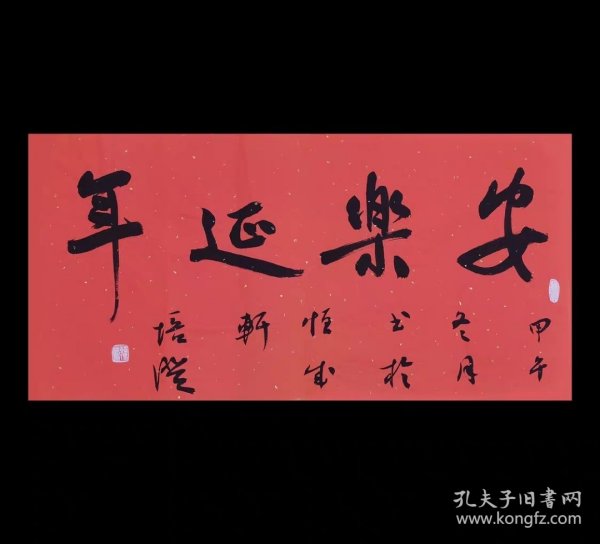 安樂延年
甲午
冬月
书於
恒成
軒
培澄
孔夫子旧書网
www.kongfz.com